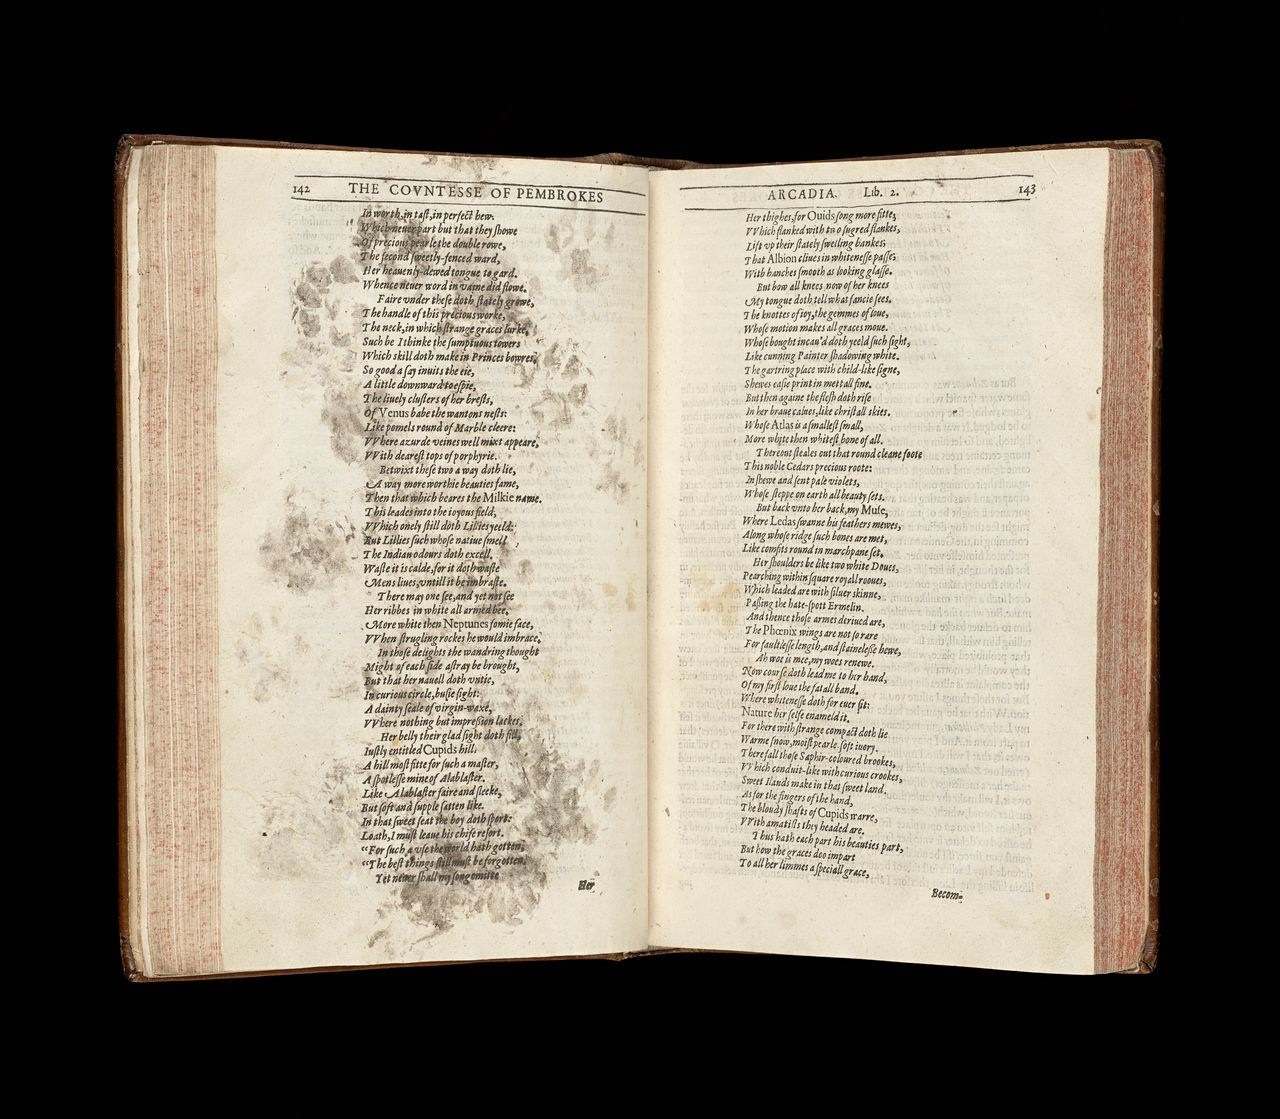 142 THE COVNTESSE OF PEMBROKES
In worth, in taſt, in perfect hew.
VVhich neuer part but that they ſhowe
Of precious pearle the double rowe,
The ſecond ſweetly-fenced ward,
Her heauenly-dewed tongue to gard.
Whence neuer word in vaine did flowe.
Faire vnder theſe doth ſtately growe,
The handle of this precious worke,
The neck, in which ſtrange graces lurke.
Such be I thinke the ſumptuous towers
Which skill doth make in Princes bowres.
So good a ſay inuits the eie,
A little downward to eſpie,
The liuely cluſters of her breſts,
Of Venus babe the wantons neſts:
Like pomels round of Marble cleere:
VVhere azurde veines well mixt appeare,
VVith deareſt tops of porphyrie.
Betwixt theſe two a way doth lie,
A way more worthie beauties fame,
Then that which beares the Milkie name.
This leades into the ioyous field,
VVhich onely ſtill doth Lillies yeeld:
But Lillies ſuch whoſe natiue ſmell
The Indian odours doth excell.
Waſte it is calde, for it doth waſte
Mens liues, vntill it be imbraſte.
There may one ſee, and yet not ſee
Her ribbes in white all armed bee.
More white then Neptunes fomie face,
VVhen ſtrugling rockes he would imbrace.
In thoſe delights the wandring thought
Might of each ſide aſtray be brought,
But that her nauell doth vnite,
In curious circle, buſie ſight:
A dainty ſeale of virgin-waxe,
VVhere nothing but impreſsion lackes.
Her belly their glad ſight doth fill,
Iuſtly entitled Cupids hill.
A hill moſt fitte for ſuch a maſter,
A ſpotleſſe mine of Alablaſter.
Like Alablaſter faire and ſleeke,
But ſoft and ſupple ſatten like.
In that ſweet ſeat the boy doth ſport:
Loath, I muſt leaue his chiefe reſort.
“For ſuch a vſe the world hath gotten,
“The beſt things ſtill muſt be forgotten.
Yet neuer ſhall my ſong omitte
Her
ARCADIA. Lib. 2. 143
Her thighes, for Ouids ſong more fitte;
VVhich flanked with two ſugred flankes,
Lift vp their ſtately ſwelling bankes:
That Albion cliues in whiteneſſe paſſe:
With hanches ſmooth as looking glaſſe.
But bow all knees now of her knees
My tongue doth tell what fancie ſees.
The knottes of ioy, the gemmes of loue,
Whoſe motion makes all graces moue.
Whoſe bought incau'd doth yeeld ſuch ſight,
Like cunning Painter ſhadowing white.
The gartring place with child-like ſigne,
Shewes eaſie print in mettall fine.
But then againe the fleſh doth riſe
In her braue calues, like chriſtall skies.
Whoſe Atlas is a ſmalleſt ſmall,
More white then whiteſt bone of all.
Thereout ſteales out that round cleane foote
This noble Cedars precious roote:
In ſhewe and ſent pale violets,
Whoſe ſteppe on earth all beauty ſets.
But back vnto her back, my Muſe,
Where Ledas ſwanne his feathers mewes,
Along whoſe ridge ſuch bones are met,
Like comfits round in marchpane ſet.
Her ſhoulders be like two white Doues,
Pearching within ſquare royall rooues,
Which leaded are with ſiluer skinne,
Paſsing the hate-ſpott Ermelin.
And thence thoſe armes deriued are,
The Phœnix wings are not ſo rare
For faultleſſe length, and ſtaineleſſe hewe,
Ah woe is mee, my woes renewe.
Now courſe doth lead me to her hand,
Of my firſt loue the fatall band.
Where whiteneſſe doth for euer ſit:
Nature her ſelfe enameld it.
For there with ſtrange compact doth lie
Warme ſnow, moiſt pearle, ſoft iuory.
There fall thoſe Saphir-coloured brookes,
VVhich conduit-like with curious crookes,
Sweet Ilands make in that ſweet land.
As for the fingers of the hand,
The bloudy ſhafts of Cupids warre,
VVith amatiſts they headed are.
Thus hath each part his beauties part,
But how the graces doo impart
To all her limmes a ſpeciall grace,
Becom-